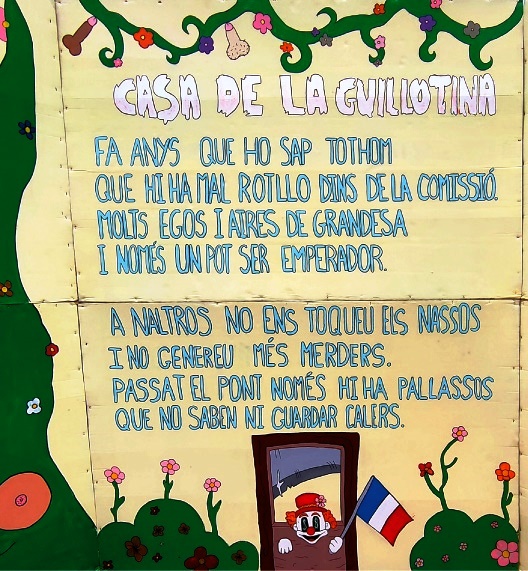 CASA DE LA GUILLOTINA
FA ANYS QUE HO SAP TOTHOM
QUE HI HA MAL ROTLLO DINS DE LA COMISSIÓ.
MOLTS EGOS I AIRES DE GRANDESA
I NOMÉS UN POT SER EMPERADOR.
A NALTROS NO ENS TOQUEU ELS NASSOS
I NO GENEREU MÉS MERDERS.
PASSAT EL PONT NOMÉS HI HA PALLASSOS
QUE NO SABEN NI GUARDAR CALERS.